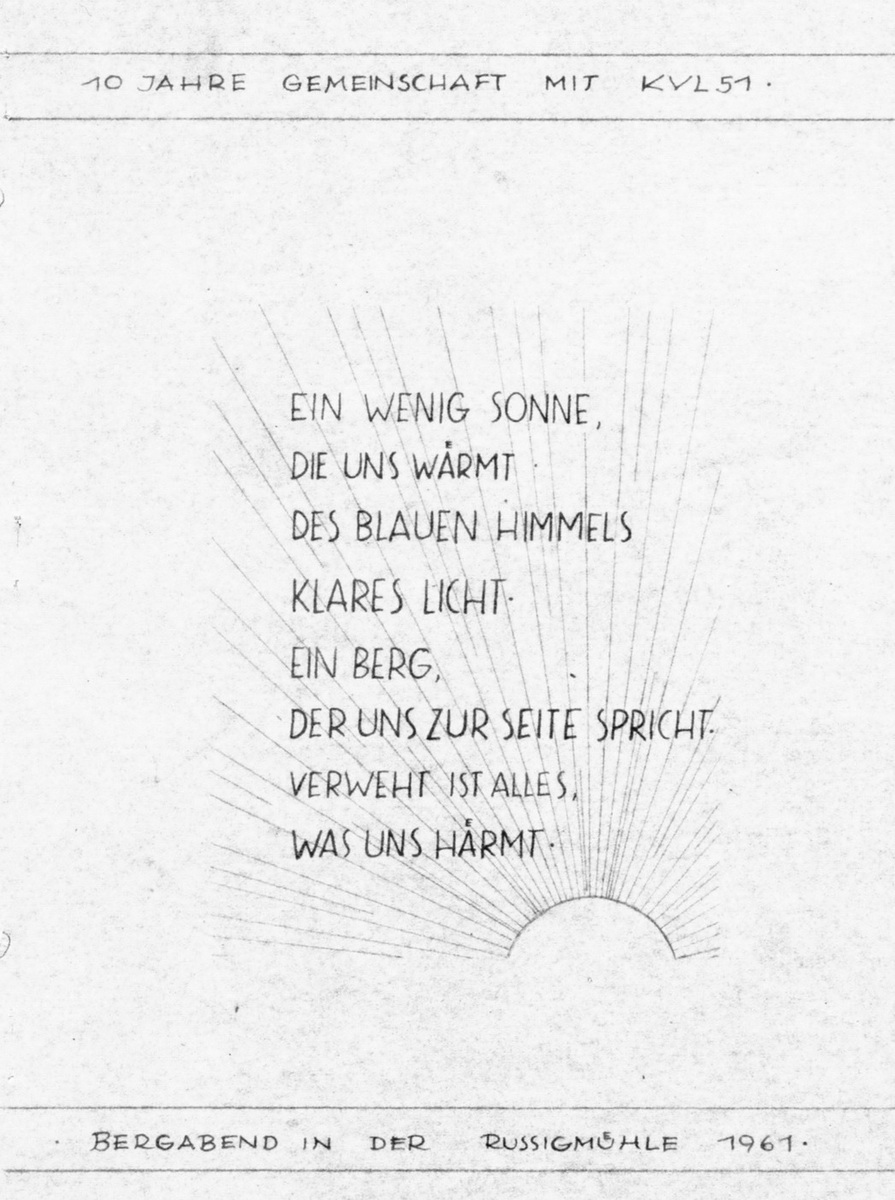 10 JAHRE GEMEINSCHAFT MIT KVL51.
EIN WENIG SONNE,
DIE UNS WÄRMT
DES BLAUEN HIMMELS
KLARES LICHT.
EIN BERG,
DER UNS ZUR SEITE SPRICHT.
VERWEHT IST ALLES,
WAS UNS HÄRMT.
· BERGABEND IN DER RUSSIGMÜHLE 1961.